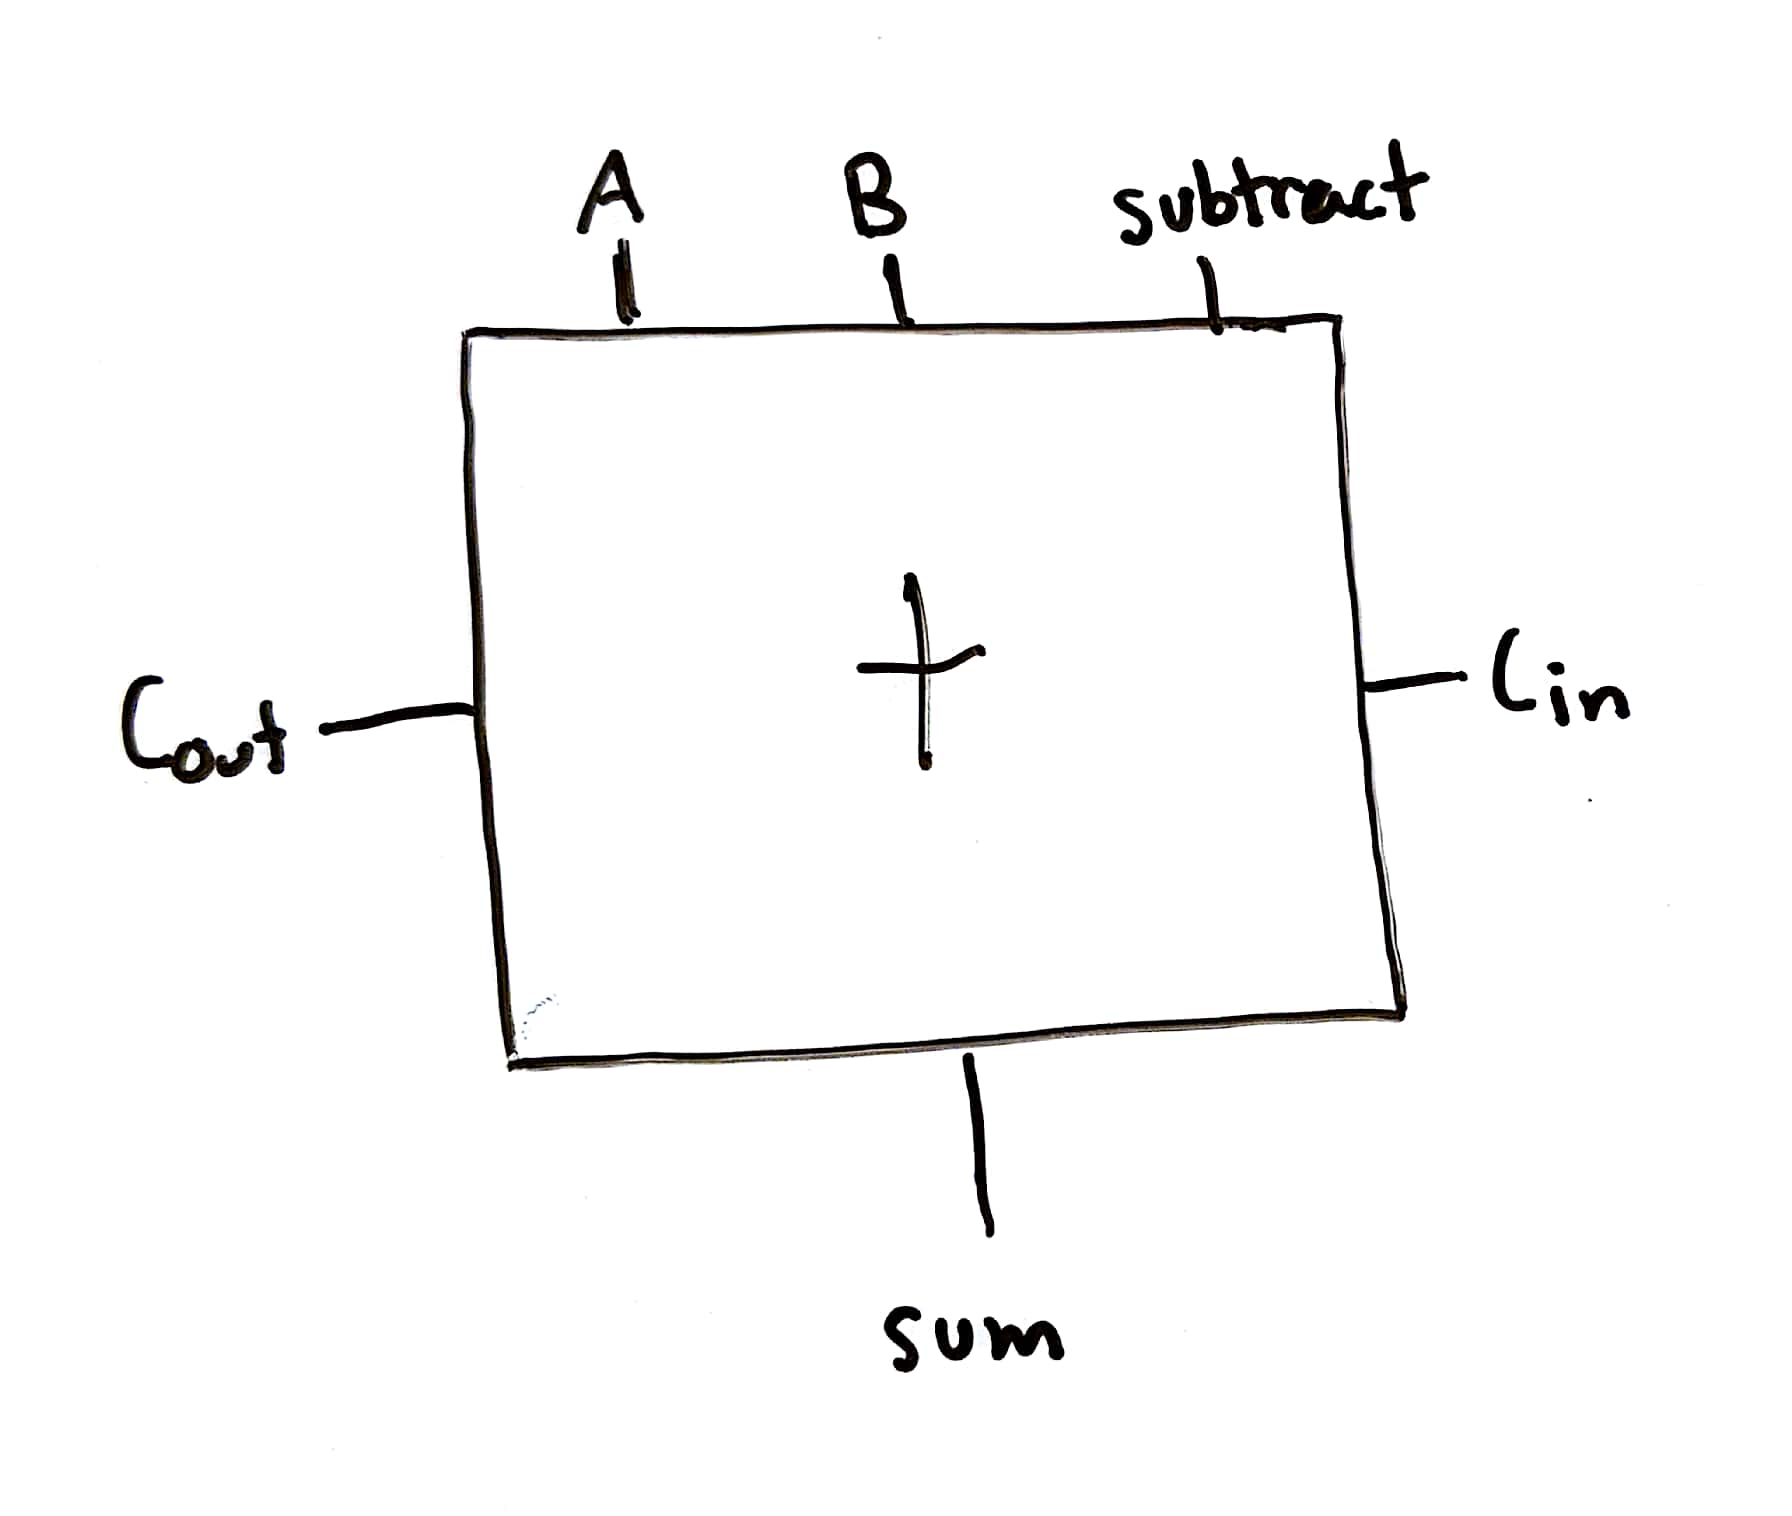 A B subtract
+
Cout Cin
sum